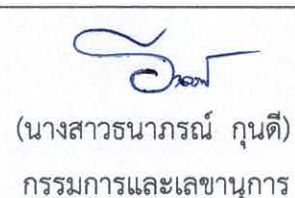 (นางสาวธนาภรณ์ กุนดี)
กรรมการและเลขานุการ